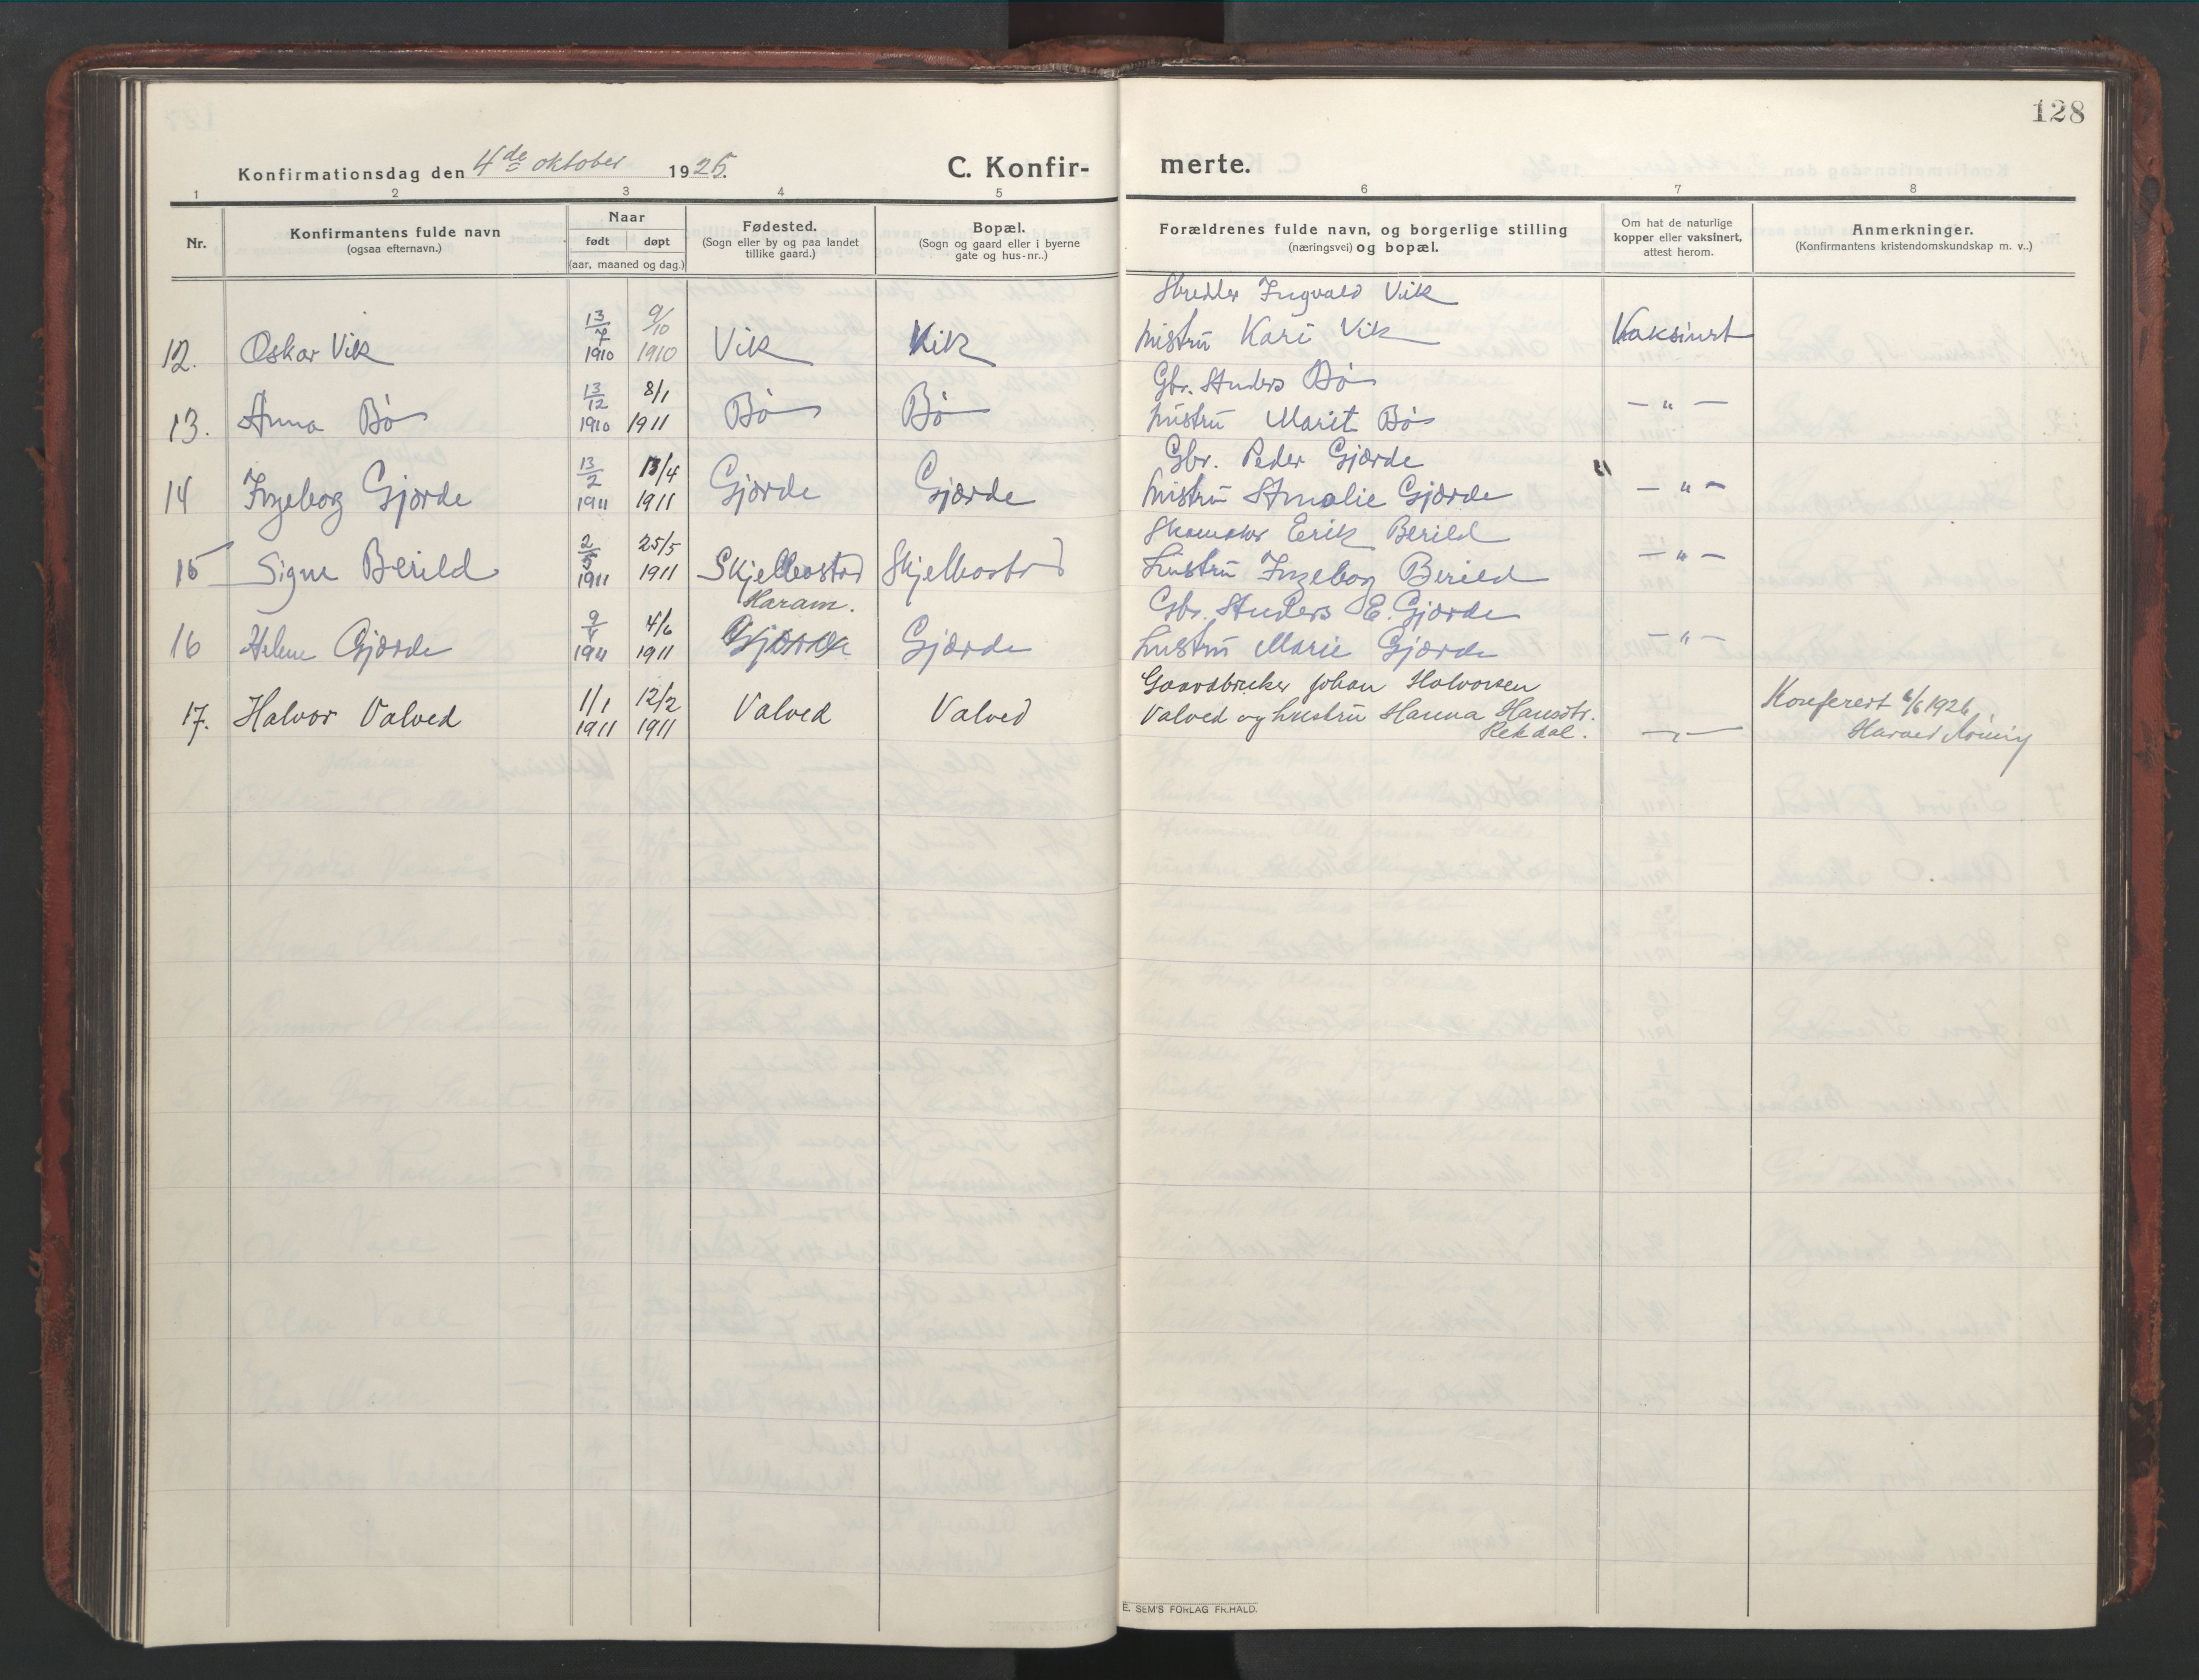 128
Konfirmationsdag den 4de oktober 1925. C. Konfirmerte.
1 2 3 4 5 6 7 8
Nr.
Konfirmantens fulde navn
(ogsaa efternavn.)
Naar
født døpt
(aar, maaned og dag.)
Fødested.
(Sogn eller by og paa landet
tillike gaard.)
Bopæl.
(Sogn og gaard eller i byerne
gate og hus-nr..)
Forældrenes fulde navn, og borgerlige stilling
(næringsvei) og bopæl.
Om hat de naturlige
kopper eller vaksinert,
attest herom.
Anmerkninger.
(Konfirmantens kristendomskundskap m. v..)
Skredder Ingvald Vik
12. Oskar Vik 13/7 1910 9/10 1910 Vik Vik hustru Kari Vik Vaksinert
Gbr. Anders Bö
13. Anna Bö 13/12 1910 8/1 1911 Bö Bö hustru Marit Bö — " —
Gbr. Peder Gjærde
14 Ingeborg Gjærde 13/2 1911 13/4 1911 Gjærde Gjærde hustru Amalie Gjærde — " —
Skomaker Erik Berild
15 Signe Berild 2/5 1911 25/5 1911 Skjelbostad Skjelbostad hustru Ingeborg Berild — " —
Haram.
Gbr. Anders E. Gjærde
16 Helene Gjærde 1911 4/6 1911 Gjærde Gjærde hustru Marie Gjærde — " —
Gaardbruker Johan Halvorsen
17. Halvor Valved 1/1 1911 12/2 1911 Valved Valved Valved og hustru Hanna Hansdtr. — " —
Rekdal.
Konferert 6/6 1926
Harald
E. SEM'S FORLAG FR.HALD.